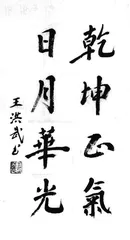 乾坤正氣
日月華光
王洪武书